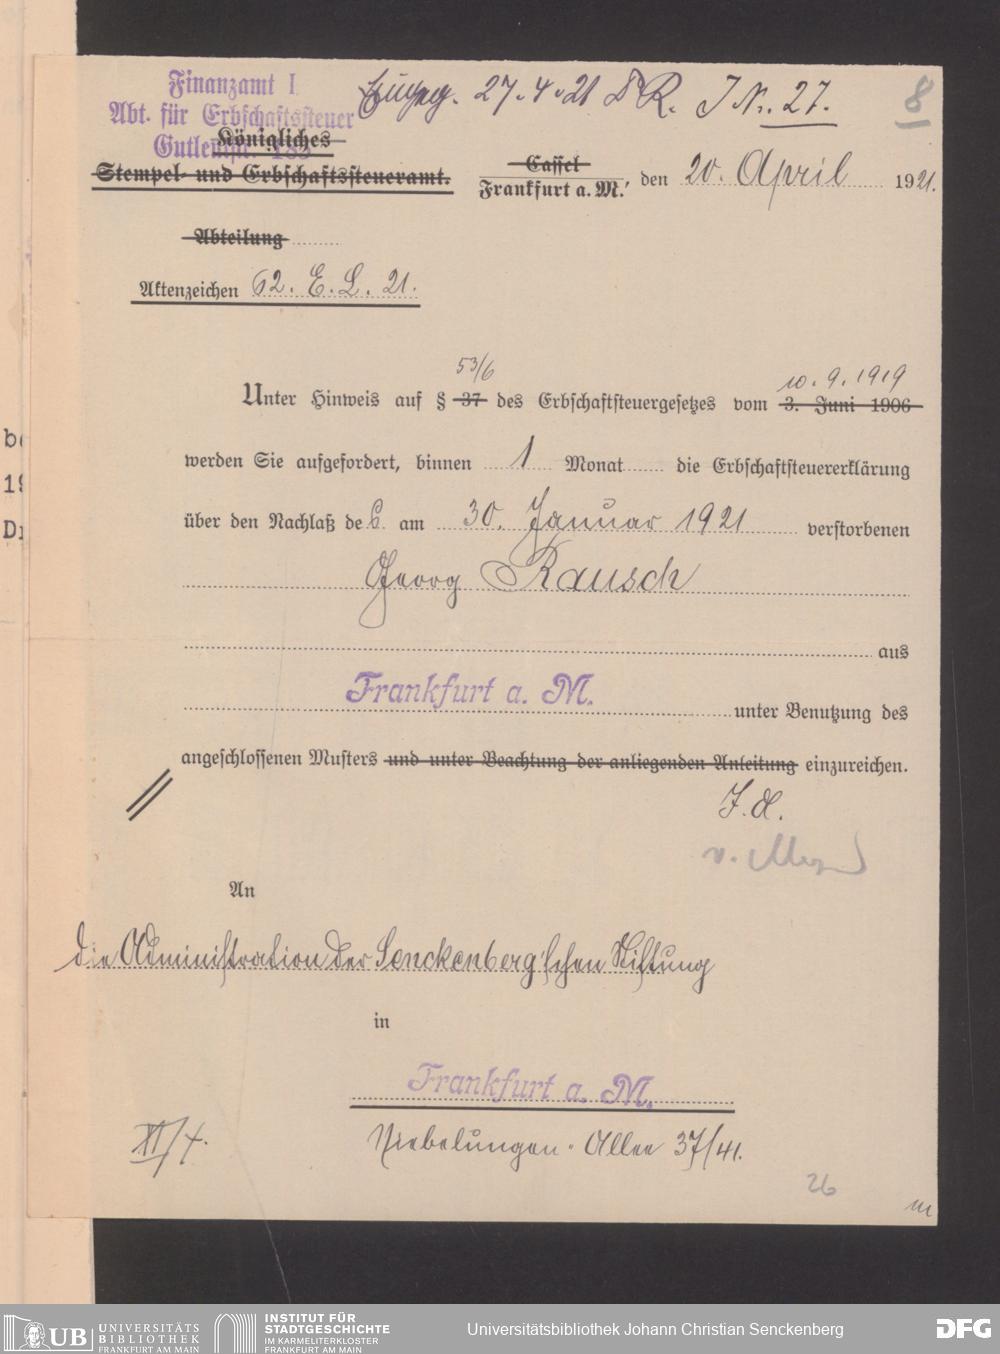 Finanzamt I
Abt. für Erbschaftssteuer
Eingeg. 27.4.21 R. J.Nr. 27.
8
Königliches
Stempel- und Erbschaftssteueramt.
Cassel
Frankfurt a. M., den 20. April 1921.
Abteilung
Aktenzeichen 62. E. L. 21.
53/6 10.9.1919
Unter Hinweis auf § 37 des Erbschaftsteuergesetzes vom 3. Juni 1906
werden Sie aufgefordert, binnen 1 Monat die Erbschaftsteuererklärung
über den Nachlaß des am 30. Januar 1921 verstorbenen
Georg Rausch
aus
Frankfurt a. M. unter Benutzung des
angeschlossenen Musters und unter Beachtung der anliegenden Anleitung einzureichen.
An
die Administration der Senckenberg'schen Stiftung
in
Frankfurt a. M.
Niebelungen-Allee 37/41.
26
UB UNIVERSITÄTS
BIBLIOTHEK
FRANKFURT AM MAIN
INSTITUT FÜR
STADTGESCHICHTE
IM KARMELITERKLOSTER
FRANKFURT AM MAIN
Universitätsbibliothek Johann Christian Senckenberg
DFG